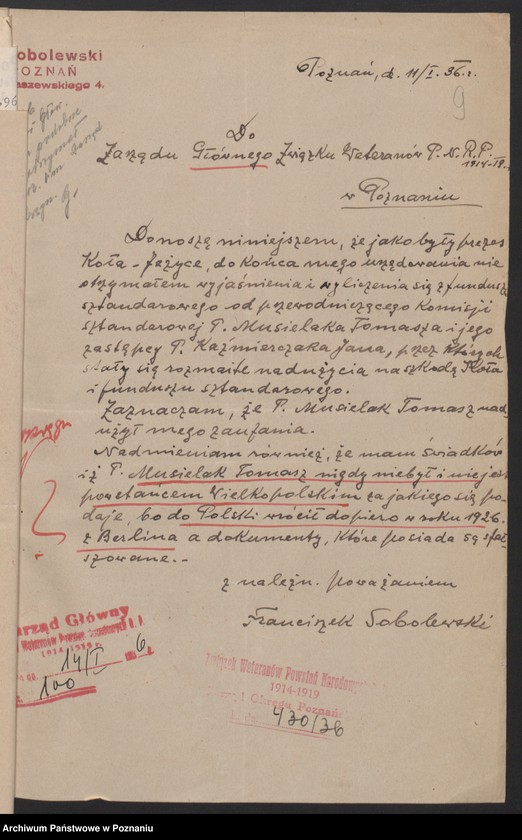 obolewski
OZNAŃ
szewskiego 4.
Poznań, d. 11/I. 36. r.
9
96
Do
Zarządu Głównego Związku Weteranów P. N. R. P.
1914-19.
w Poznaniu
Donoszę niniejszem, że jako były prezes
Koła - Jeżyce, do końca mego urzędowania nie
otrzymałem wyjaśnienia i wyliczenia się z funduszu
sztandarowego od przewodniczącego Komisji
sztandarowej P. Musielaka Tomasza i jego
zastępcy P. Kaźmierczaka Jana, przez których
stały się rozmaite nadużycia na szkodę Koła
i funduszu sztandarowego.
Zaznaczam, że P. Musielak Tomasz nad-
użył mego zaufania.
Nadmieniam również, że mam świadków
iż P. Musielak Tomasz nigdy niebył i nie jest
powstańcem Wielkopolskim za jakiego się po-
daje, bo do Polski wrócił dopiero w roku 1926.
z Berlina a dokumenty, które posiada są sfał-
szowane.-
z należn. poważaniem
Franciszek Sobolewski
arząd Główny
1914-1919
14/I 6
100
Związek Weteranów Powstań Narodowych
1914-1919
Okręgu Poznań
430/36
Archiwum Państwowe w Poznaniu